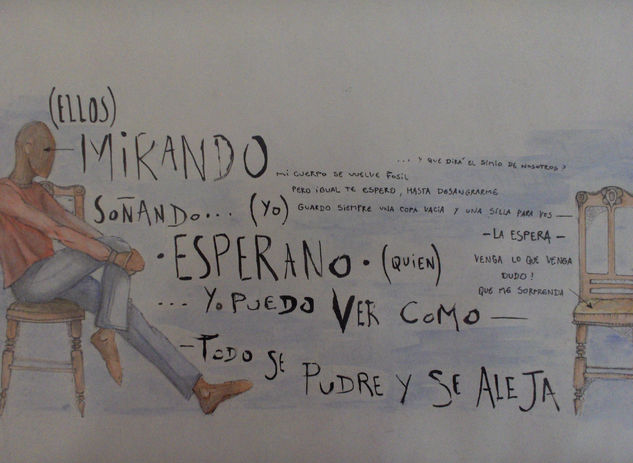 (ELLOS)
MIRANDO
... Y QUE DIRÁ EL SIMIO DE NOSOTROS?
MI CUERPO SE VUELVE FOSIL
PERO IGUAL TE ESPERO, HASTA DESANGRARME
SOÑANDO... (YO)
GUARDO SIEMPRE UNA COPA VACIA Y UNA SILLA PARA VOS —
- LA ESPERA -
·ESPERANDO· (QUIEN)
VENGA LO QUE VENGA
DUDO!
QUE ME SORPRENDA
... YO PUEDO VER COMO —
- TODO SE PUDRE Y SE ALEJA